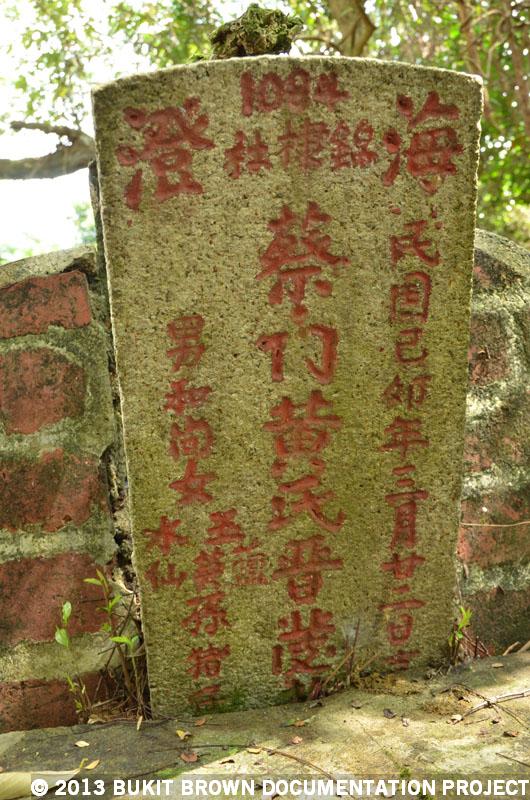 1094
錦棣社
海澄
民国己卯年三月廿二日
蔡门黄氏晋
男和尚女
玉
水仙
孫
© 2013 BUKIT BROWN DOCUMENTATION PROJECT